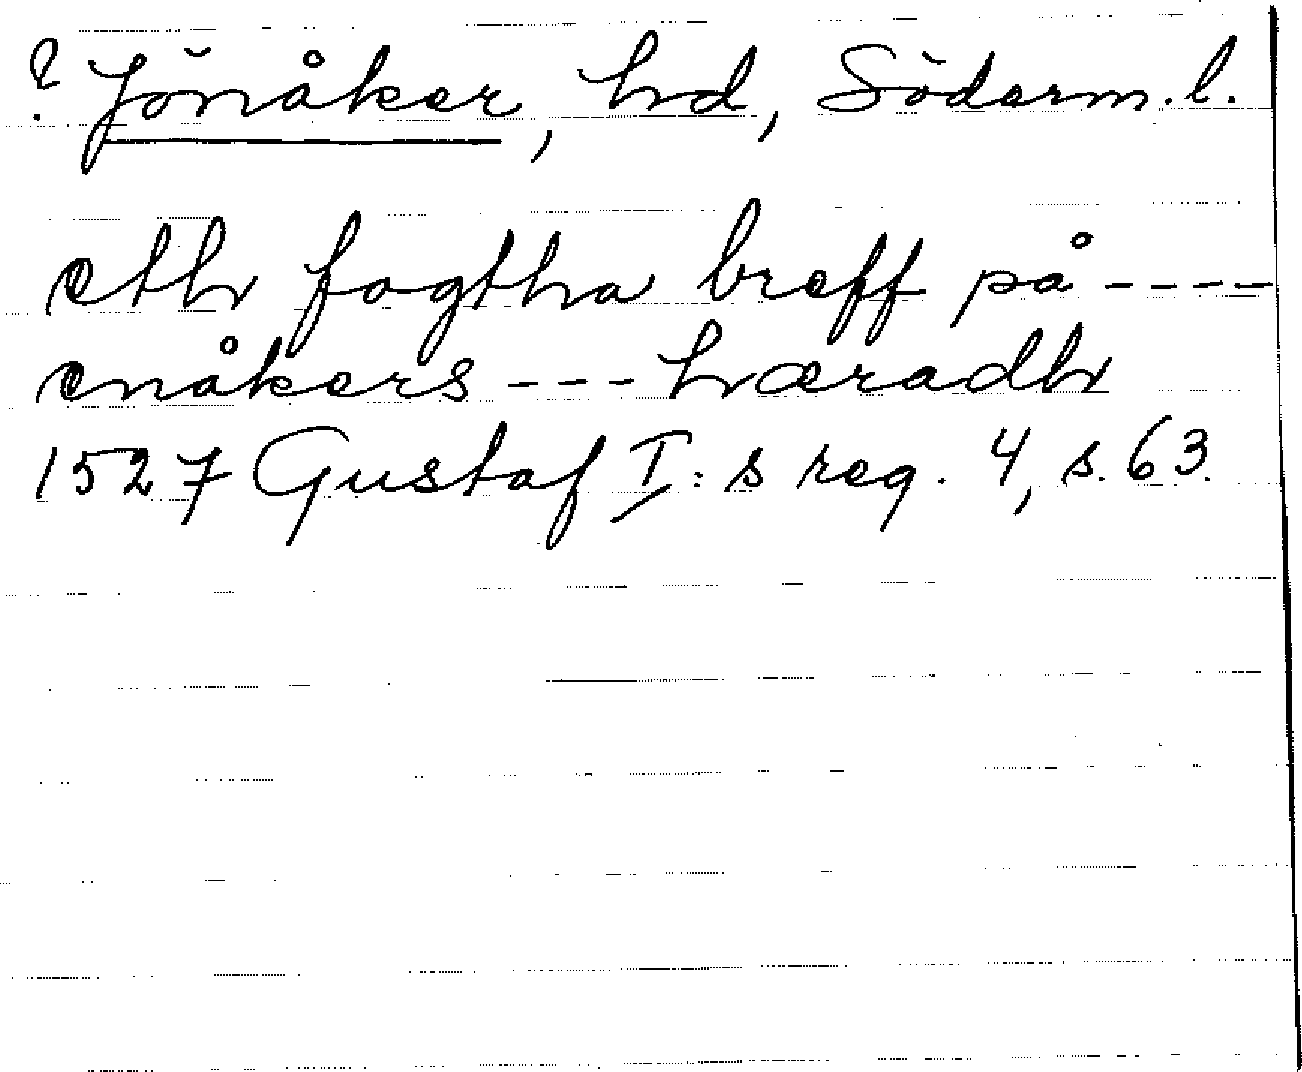 ? Jönåker, hd, Söderm. l.
eth fogtha breff på ----
enåkers --- hæradh
1527 Gustaf I:s reg. 4, s. 63.